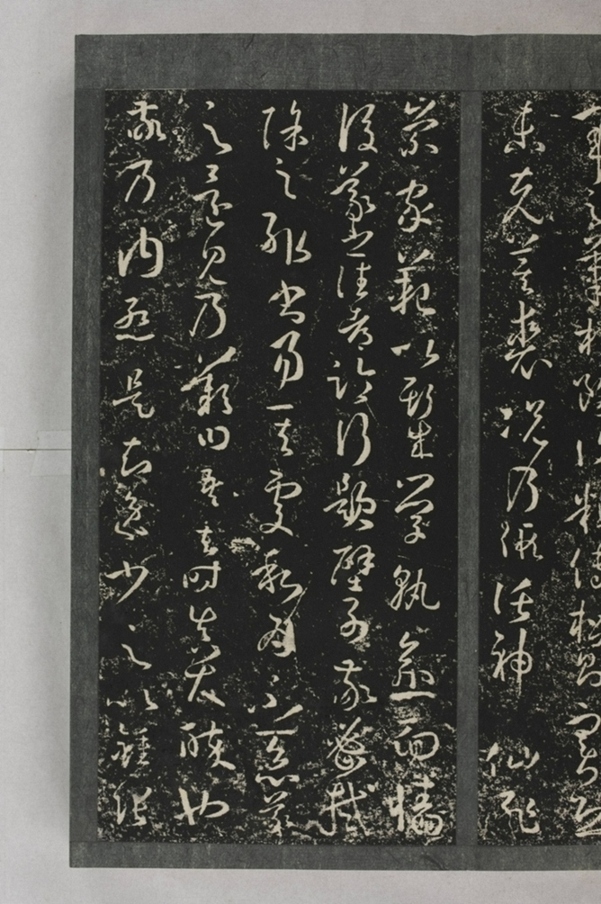 軍之筆札雖復粗傳楷則實恐
未克箕裘況乃假託神仙恥
崇家範以斯成學孰愈面牆
後羲之往都臨行題壁子敬密拭
除之輒書易其處私為不惡羲
之還見乃歎曰吾去時真大醉也
敬乃內慙是知逸少之比鍾張